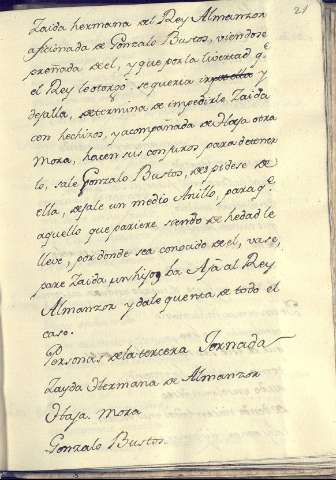 21
Zaida hermana del Rey Almanzor
aficionada de Gonzalo Bustos, viendose
preñada de el, y que por la libertad q.e
el Rey le otorgó, se queria y
dejalla, determina de impedirle Zaida
con hechizos, y acompañada de Haja otra
Mora, hacen sus conjuros para detener
lo, sale Gonzalo Bustos, despidese de
ella, dejale un medio Anillo, para q.e
aquello que pariere siendo de hedad le
lleve, por donde sea conocido de el, vase,
pare Zaida un hijo, ha Aja al Rey
Almanzor y dale quenta de todo el
caso.
Personas de la tercera Jornada
Zayda Hermana de Almanzor
Haja. Mora
Gonzalo Bustos.